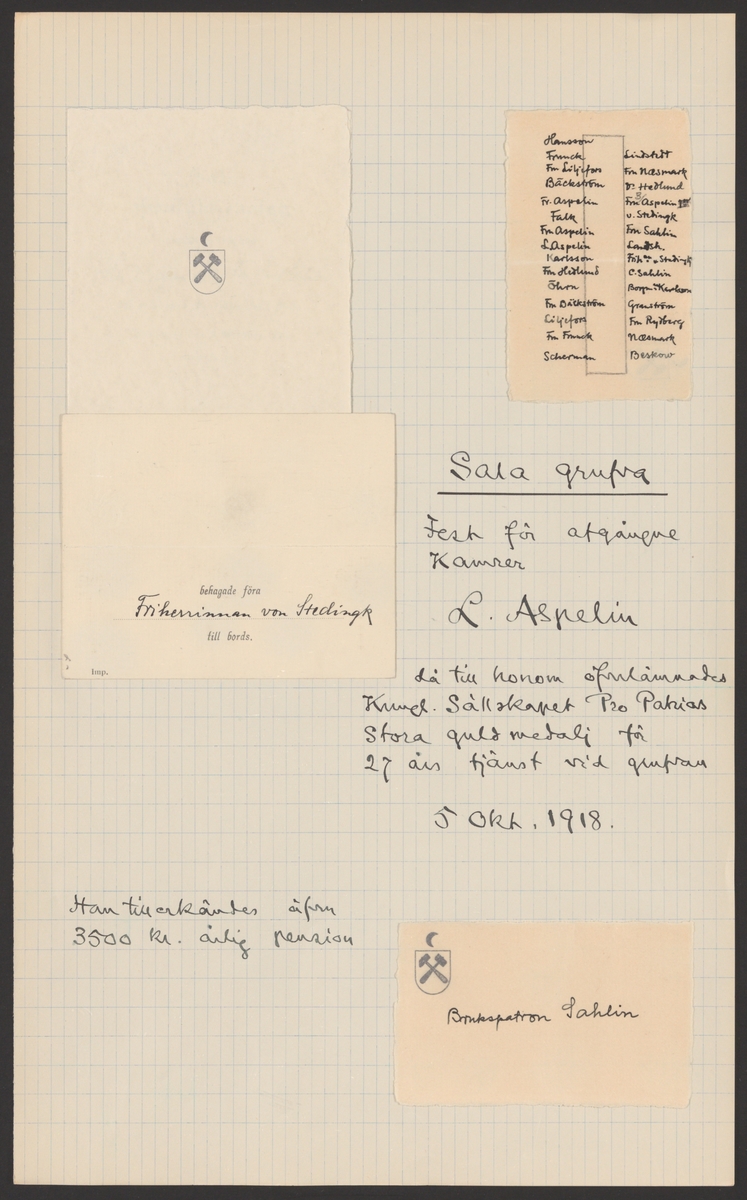 Hansson
Franck
Fru Liljefors
Bäckström
Fr. Aspelin
Falk
Fru Aspelin
L. Aspelin
Karlsson
Fru Hedlund
Öhrn
Fru Bäckström
Liljefors
Fru Franck
Scherman
Lindstedt
Fru Næsmark
Dr Hedlund
Fru Aspelin
v. Stedingk
Fru Sahlin
Landsh.
v. Stedingk
C. Sahlin
Karlsson
Granström
Fru Rydberg
Næsmark
Beskow
Sala grufva
Fest för afgångne
Kamrer
L. Aspelin
då till honom öfverlämnades
Kungl. Sällskapet Pro Patrias
Stora guldmedalj för
27 års tjänst vid grufvan
5 Okt. 1918.
behagade föra
Friherrinnan von Stedingk
till bords.
Imp.
Han tillerkändes äfven
3500 kr. årlig pension
Brukspatron Sahlin